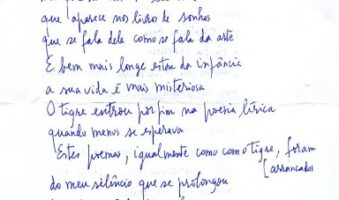 que aparece nos livro de sonhos
que se fala dele como se fala da arte
E bem mais longe estou da infância
a sua vida é mais misteriosa
O tigre entrou por fim na poesia lírica
quando menos se esperava
Estes poemas, igualmente como com o tigre, foram
[arrancados
do meu silêncio que se prolongou